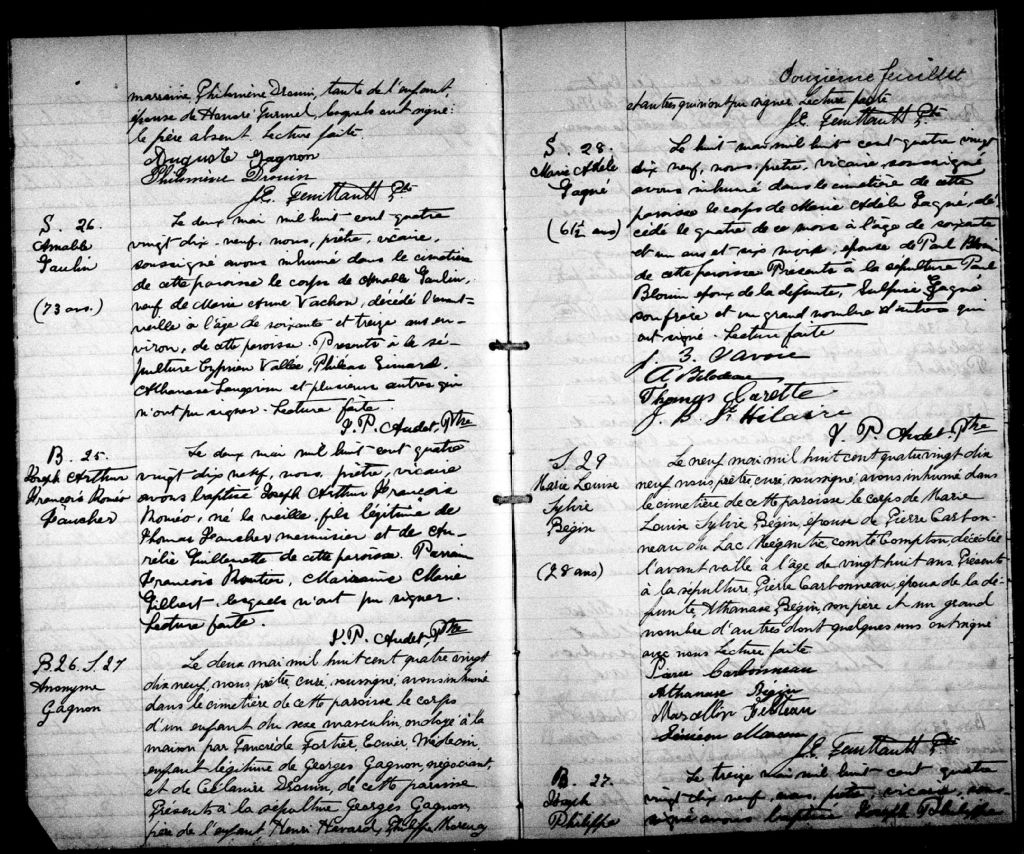 marraine, Philomène Drouin, tante de l'enfant,
épouse de Honoré Turmel, lesquels ont signé:
le père absent. Lecture faite.
Auguste Gagnon
Philomène Drouin
J.E. Feuiltault Ptre
S. 26.
Amable
Paulin
(73 ans.)
Le deux mai mil huit cent quatre
vingt dix-neuf, nous, prêtre, vicaire,
soussigné avons inhumé dans le cimetière
de cette paroisse le corps de Amable Paulin,
veuf de Marie Anne Vachon, décédé l'avant-
veille à l'âge de soixante et treize ans en-
viron, de cette paroisse. Présents à la sé-
pulture Cyprien Vallée, Philéas Simard,
Athanase Langevin et plusieurs autres qui
n'ont pu signer. Lecture faite.
J. P. Audet, Ptre
B. 25.
Joseph Arthur
François Roméo
Faucher
Le deux mai mil huit cent quatre
vingt dix neuf, nous, prêtre, vicaire
avons baptisé Joseph Arthur François
Roméo, né la veille, fils légitime de
Thomas Faucher menuisier et de Au-
rélie Guillemette de cette paroisse. Parrain
François Marraine Marie
Gilbert, lesquels n'ont pu signer.
Lecture faite.
J. P. Audet, Ptre
B. 26. S. 27
Anonyme
Gagnon
Le deux mai mil huit cent quatre vingt
dix neuf, nous prêtre curé, soussigné, avons inhumé
dans le cimetière de cette paroisse le corps
d'un enfant du sexe masculin, ondoyé à la
maison par Tancrède Fortier, Ecuier, Médecin,
enfant légitime de Georges Gagnon, négociant,
et de Célanire Drouin, de cette paroisse
Présents à la sépulture Georges Gagnon,
père de l'enfant, Henri Philippe
Douzième feuillet
et autres qui n'ont pu signer. Lecture faite
J.E. Feuiltault Ptre
S. 28.
Marie Adèle
Gagné
(61½ ans)
Le huit mai mil huit cent quatre vingt
dix neuf, nous, prêtre, vicaire, soussigné
avons inhumé dans le cimetière de cette
paroisse le corps de Marie Adèle Gagné, dé-
cédé le quatre de ce mois à l'âge de soixante
et un ans et six mois; épouse de Paul Blouin
de cette paroisse Présents à la sépulture Paul
Blouin époux de la défunte, Sulpice Gagné
son frère et un grand nombre d'autres qui
ont signé. Lecture faite
J. Z. Savoie
A Bilodeau
Thomas Carette
J. B. St Hilaire
J. P. Audet, Ptre
S. 29
Marie Louise
Sylvie
Bégin
(28 ans)
Le neuf mai mil huit cent quatre vingt dix
neuf nous prêtre curé, soussigné, avons inhumé dans
le cimetière de cette paroisse, le corps de Marie
Louise Sylvie Bégin, épouse de Pierre Carbon-
neau du Lac Mégantic, comté Compton, décédée
l'avant veille à l'âge de vingt huit ans. Présents
à la sépulture, Pierre Carbonneau, époux de la dé-
funte Athanase Bégin, son père et un grand
nombre d'autres dont quelques uns ont signé
avec nous Lecture faite
Pierre Carbonneau
Athanase Bégin
Marcellin Fecteau
Siméon
J.E. Feuiltault Ptre
B. 27.
Joseph
Philippe
Le treize mai mil huit cent quatre
vingt dix neuf, nous, prêtre, vicaire, sous-
signé avons baptisé Joseph Philippe